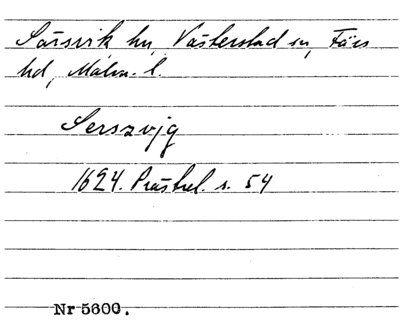 Särsvik hn, Västerstad sn, Färs
hd, Malm. l.
Serszvjg
1624. Prästrel. s. 54
Nr 5600.